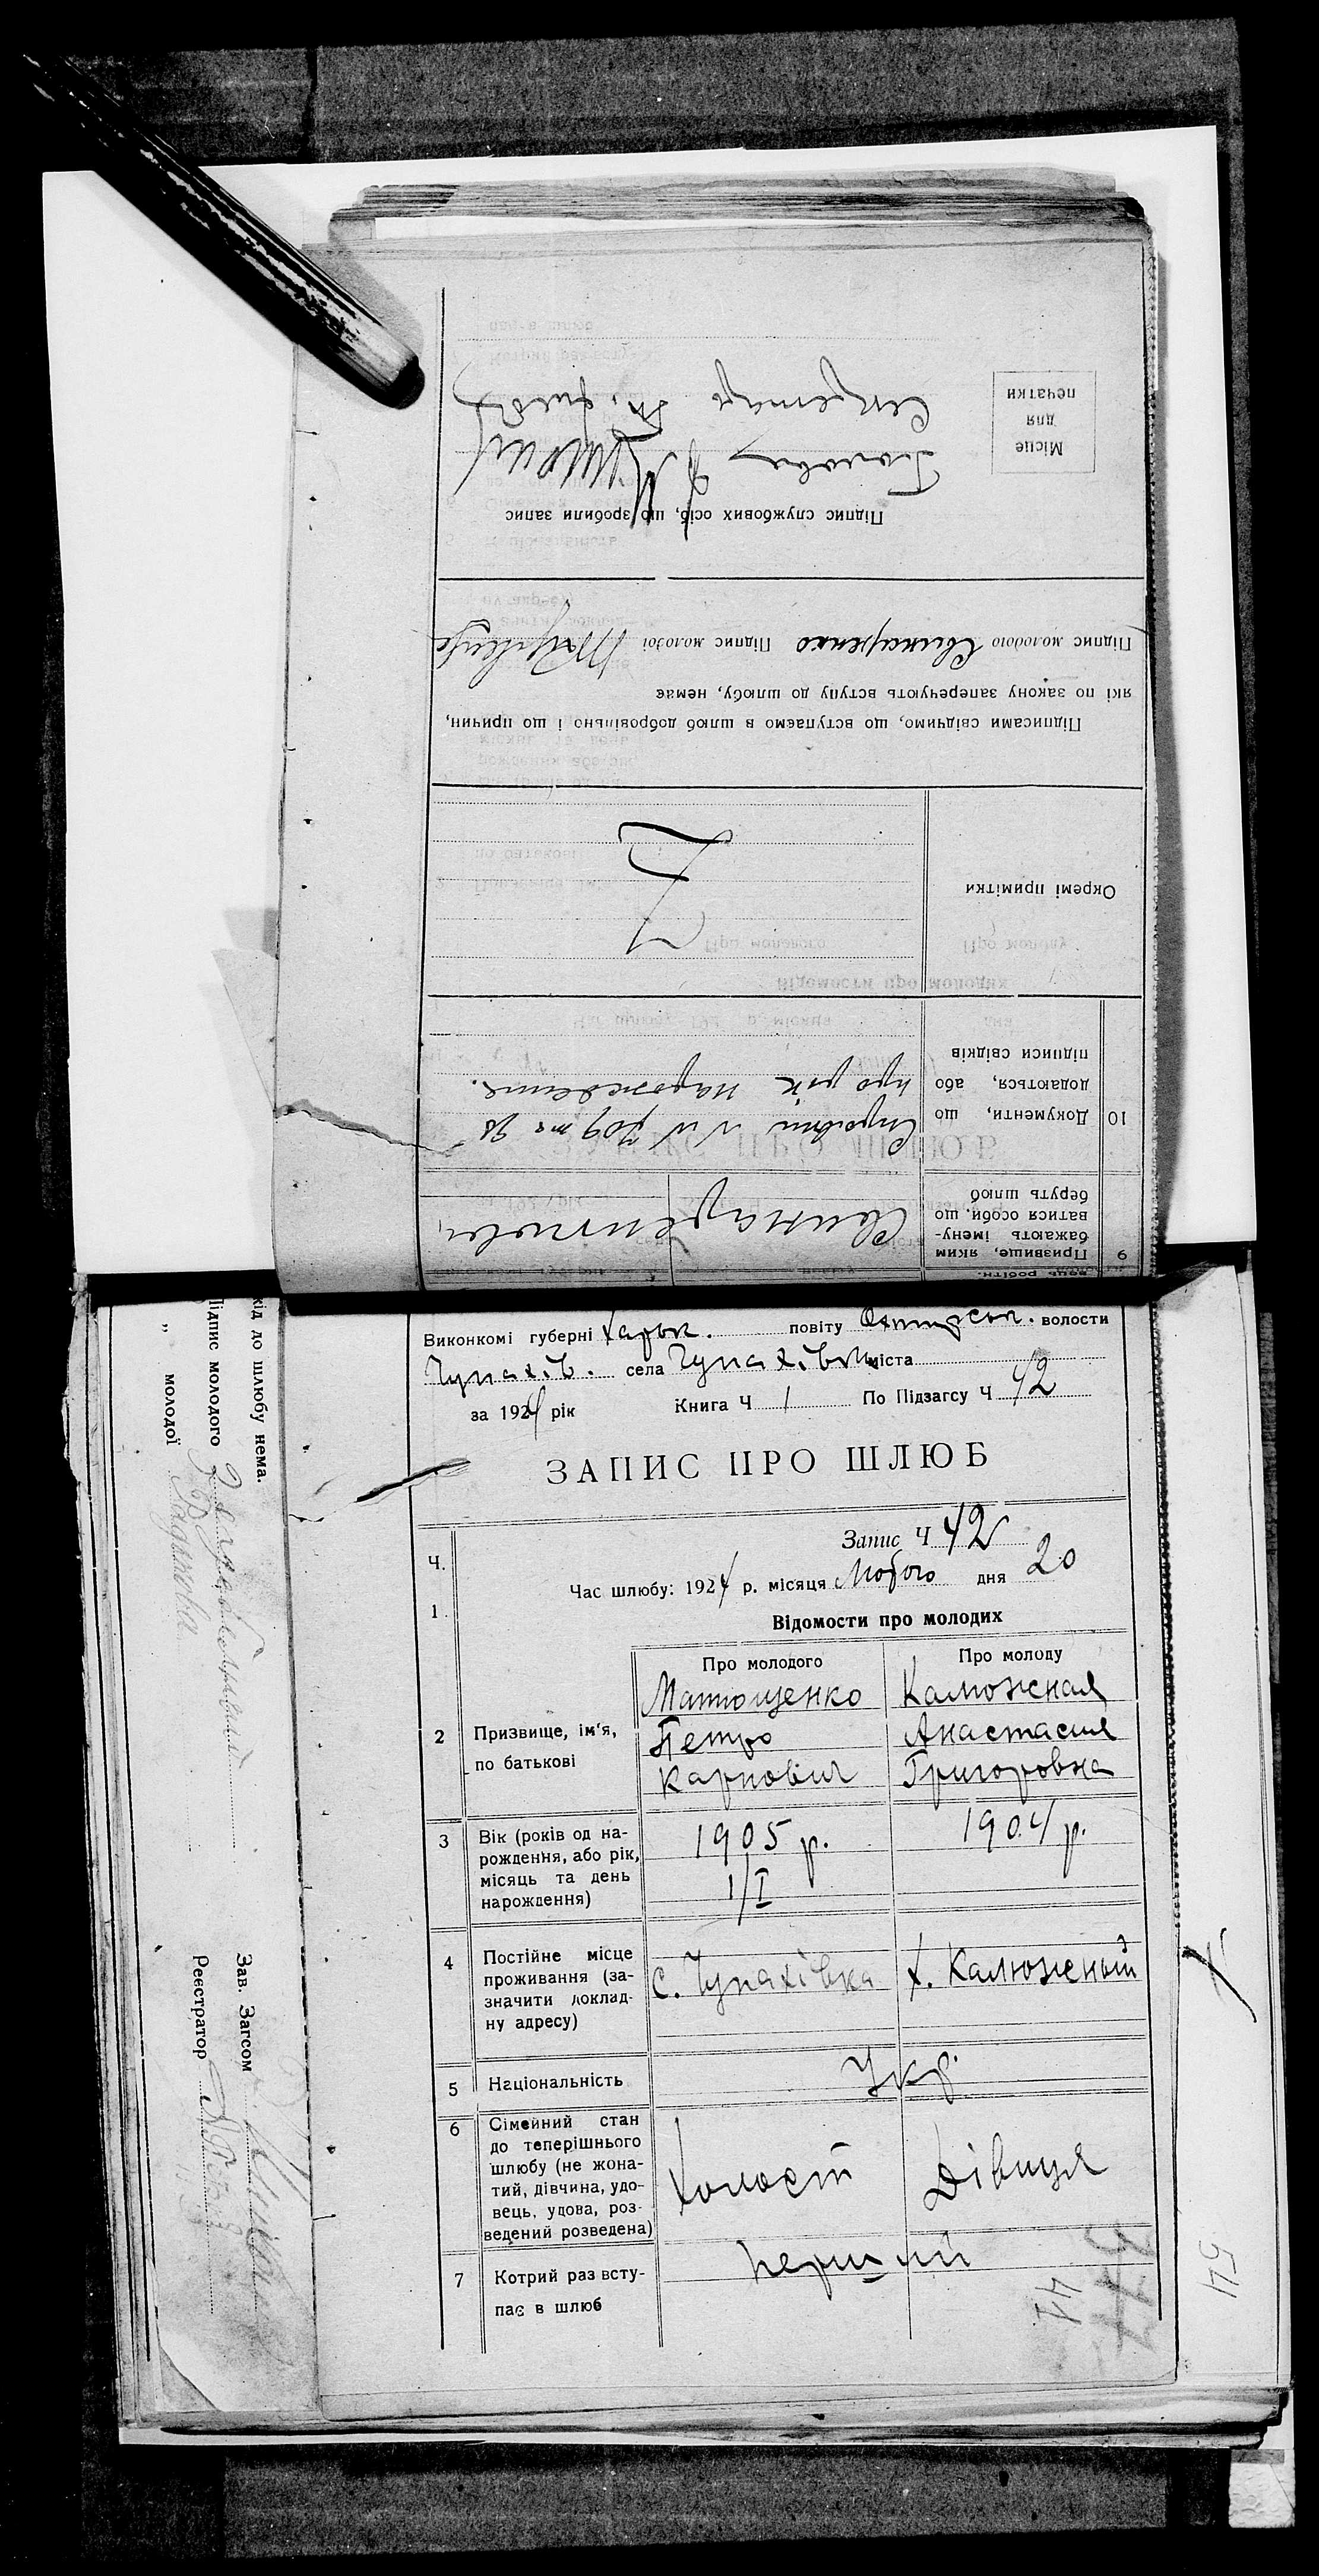 Місце
для
печатки
Голова
Секретарь
Підпис службових осіб, що зробили запис
Підпис молодого Свинаренко Підпис молодої
Підписами свідчимо, що вступаємо в шлюб добровільно і що причин,
які по закону заперечують вступу до шлюбу, немає
Окремі примітки
10 Документи, що
додаються, або
підписи свідків
про рік нарождения.
9 Призвище, яким
бажають імену-
ватися особи, що
беруть шлюб
Виконкомі губерні Харьк. повіту Охтирськ. волости
Чупахів. села Чупахівки міста
за 1924 рік Книга Ч 1 По Підзагсу Ч 42
ЗАПИС ПРО ШЛЮБ
Запис Ч 42
Ч.
1. Час шлюбу: 1924 р. місяця Лютого дня 20
Відомости про молодих
Про молодого Про молоду
2 Призвище, ім'я,
по батькові
Матющенко Калюжная
Петро Анастасия
Карпович Григоровна
3 Вік (років од на-
рождення, або рік,
місяць та день
нарождення)
1905 р. 1904 р.
1/I
4 Постійне місце
проживання (за-
значити доклад-
ну адресу)
С. Чупахівка х. Калюжный
5 Національність Укр.
6 Сімейний стан
до теперішнього
шлюбу (не жона-
тий, дівчина, удо-
вець, удова, роз-
ведений розведена)
Холост Дівиця
7 Котрий раз всту-
пає в шлюб
перший
41
54
хід до шлюбу нема.
Підпис молодого
„ молодої
Зав. Загсом
Реєстратор